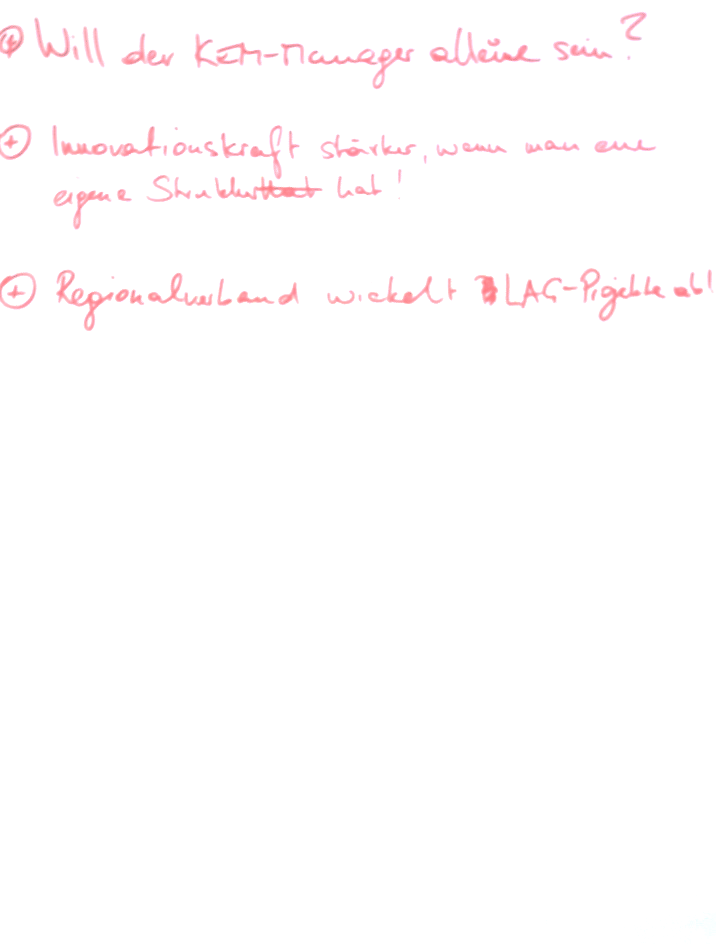 ⊕ Will der KEM-Manager alleine sein?
⊕ Innovationskraft stärker, wenn man eine
eigene Struktur hat!
⊕ Regionalverband wickelt LAG-Projekte ab!